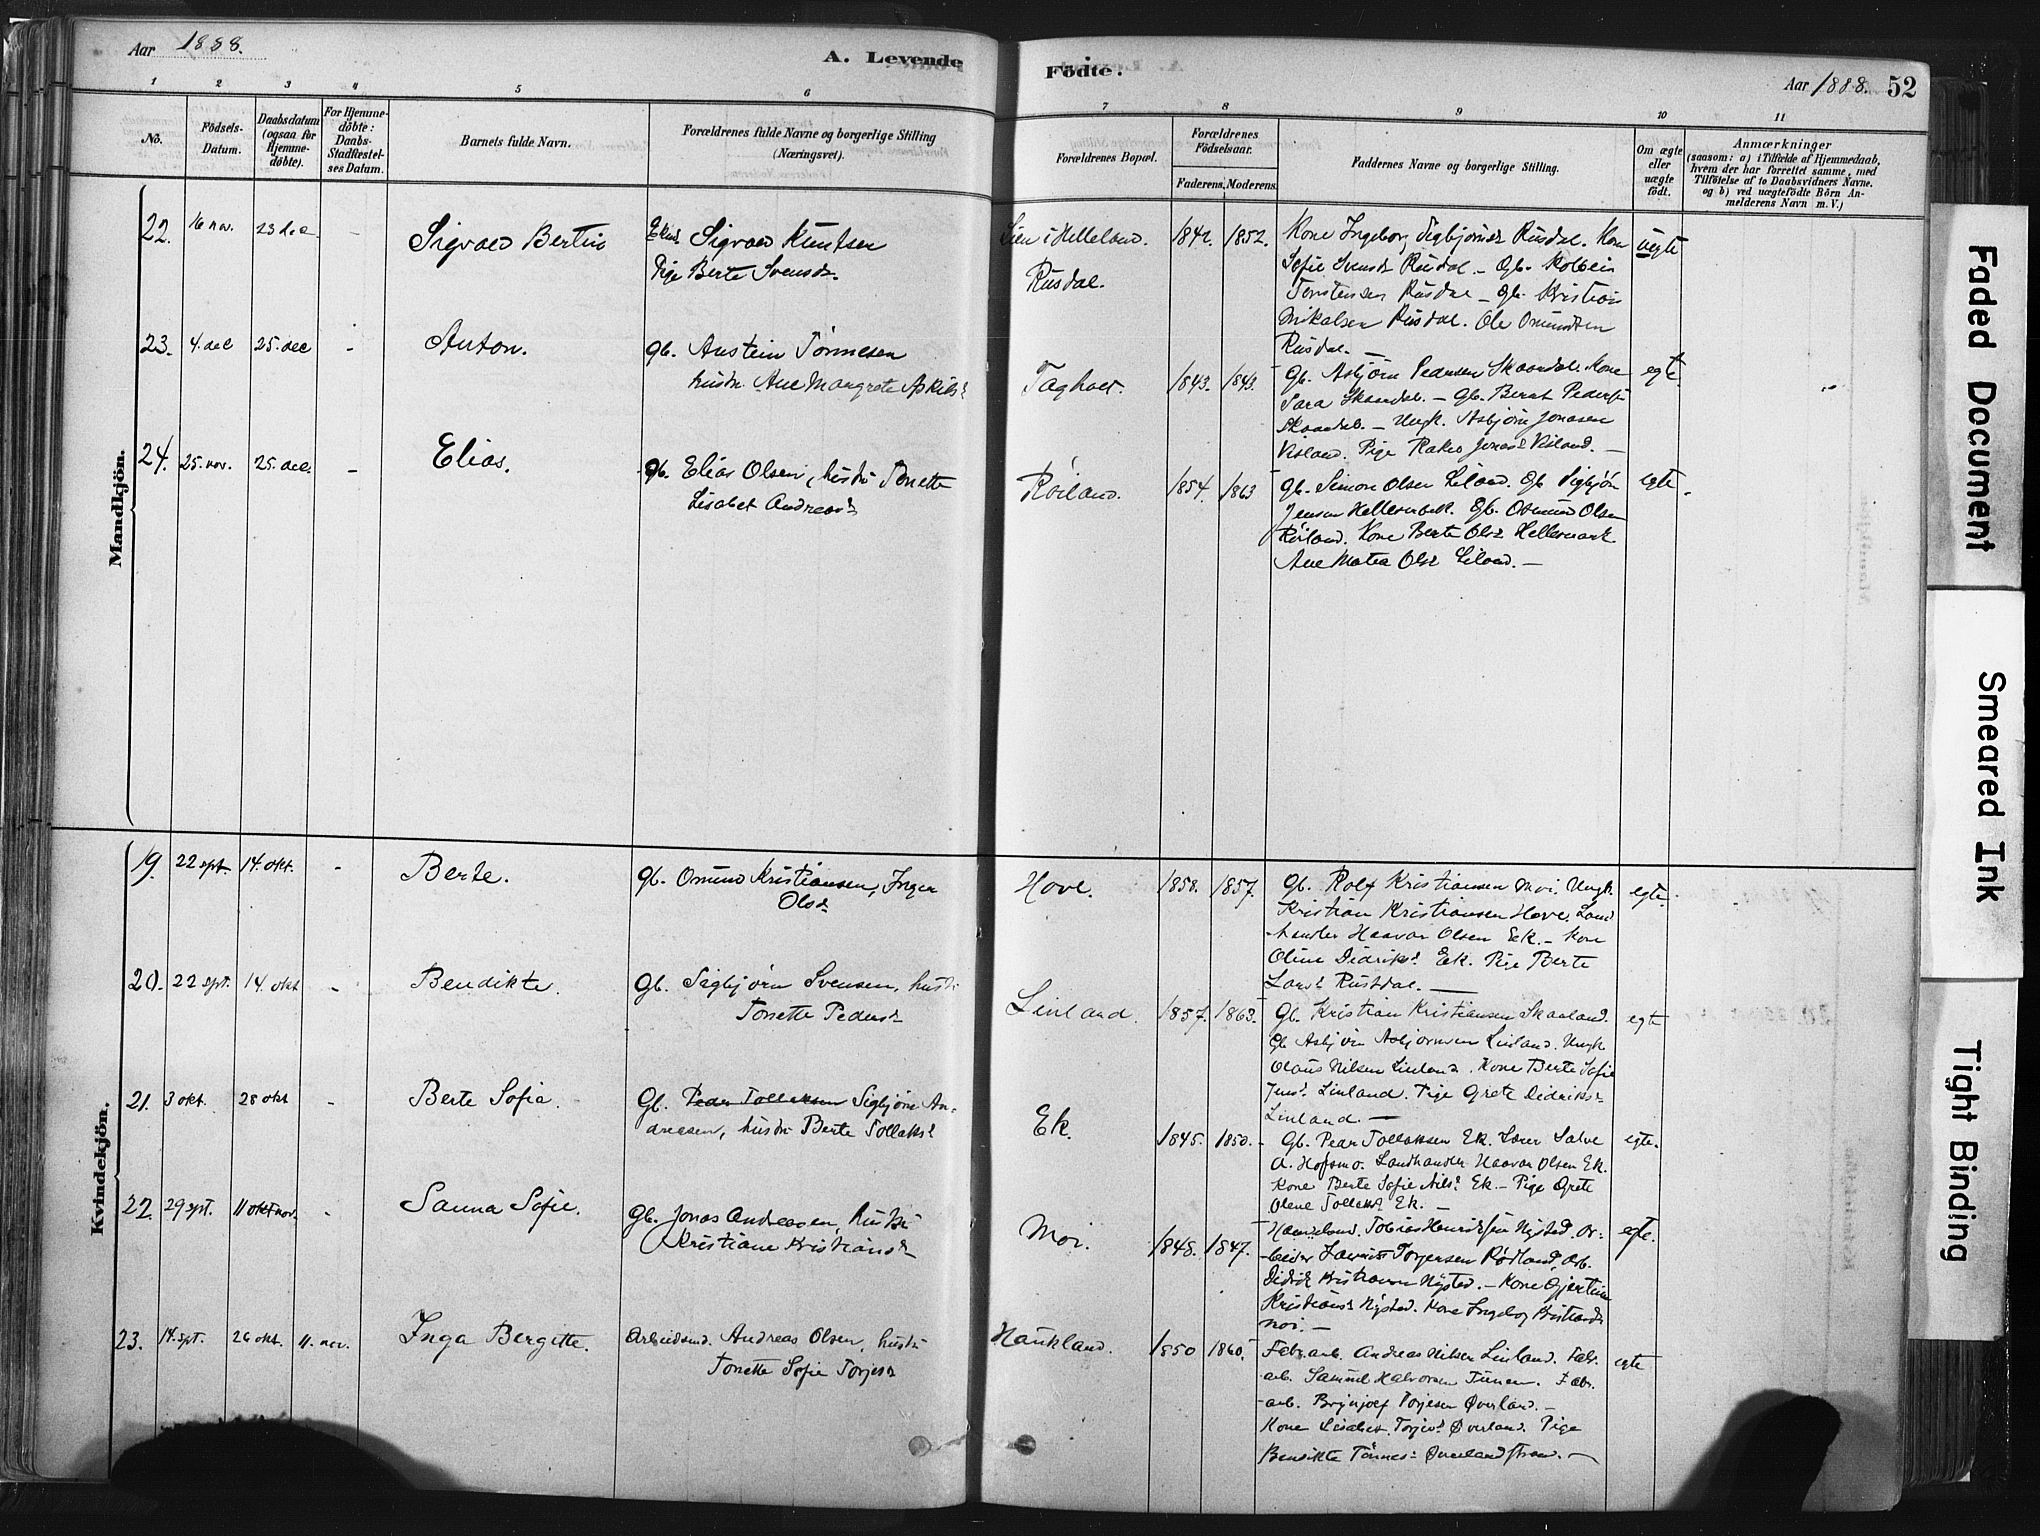 Aar 1888.
A. Levende
Födte.
Aar 1888. 52
1 2 3 4 5 6 7 8 9 10 11
No.
Födsels-Datum.
Daabsdatum (ogsaa för Hjemme-döbte).
For Hjemme-döbte: Daabs-Stadfæstel-ses Datum.
Barnets fulde Navn.
Forældrenes fulde Navne og borgerlige Stilling
(Næringsvei).
Forældrenes Bopæl.
Forældrenes Födselsaar.
Faderens. Moderens.
Faddernes Navne og borgerlige Stilling.
Om ægte eller uægte födt.
Anmærkninger
(saasom: a) i Tilfælde af Hjemmedaab,
hvem der har forrettet samme, med
Tilföielse af to Daabsvidners Navne,
og b) ved uægtefödte Börn An-
melderens Navn m. V.)
Mandkjön.
22. 16 nov. 23 dec - Sigvald Bertin
Sigvald Knutsen
Pige Berte Svensd.
i Helleland.
Rusdal.
1842. 1852.
Kone Ingeborg Sigbjørnsd Rusdal. Kone
Sofie Svensd Rusdal - Gb. Kolbein
Torstensen Rusdal - Gb. Kristian
Mikalsen Rusdal. Ole Omundsen
Rusdal. -
uegte
23. 4. dec 25. dec - Anton.
gb. Austein Tønnesen
hustr. Ane Margrete Askilsd
Tagholt.
1843. 1843.
Gb. Asbjørn Pedersen Skaardal. Kone
Sara Skaardal. - Gb. Berent Peders
Skaardal. - Ungk. Asbjørn Jonasen
Visland. Pige Rakel Jonasd Visland. -
egte.
24. 25. nov. 25. dec. - Elias.
gb. Elias Olsen, hustr Tonette
Lisabet Andreasd
Røiland.
1854. 1863
Gb. Simon Olsen Eiland. Gb Sigbjørn
Jensen Hellersbek. Gb. Osmund Olsen
Røiland. Kone Berte Olsd Hellesmark
Ane Matea Olsd Eiland. -
egte.
Kvindekjön.
19. 22 sept. 14. okt. - Berte.
gb. Omund Kristiansen, Inger
Olsd
Hove.
1858. 1857.
Gb. Rolf Kristiansen Moi, Ungk.
Kristian Kristiansen Hove, Land
handler Haavar Olsen Eek. - Kone
Oline Didriksd Eek. Pige Berte
Larsd Rusdal. -
egte.
20. 22 spt. 14. okt - Bendikte.
gb. Sigbjørn Svensen, hustr
Tonette Pedersd
Linland.
1857. 1863.
Gb. Kristian Kristiansen Skaaland.
Gb Asbjørn Asbjørnsen Linland. Ungk
Olaus Nilsen Linland. Kone Berte Sofie
Jensd Linland. Pige Grete Didriksd
Linland. -
egte
21. 3 okt. 28 okt - Berte Sofie.
Gb. Peder Tollaksen Sigbjørn An-
dreasen, hustr Berte Tollaksd
Ek.
1845. 1850.
Gb. Peder Tollaksen Ek. Lærer Salve
A. Hofsmo. Landhandler Haavar Olsen Ek.
Kone Berte Sofie Nilsd Ek. - Pige Grete
Olene Tollaksd Ek. -
egte.
22. 29 spt. 11 okt nov. - Sanna Sofie.
Gb. Jonas Andreasen, hustr
Kristiane Kristiansd
Moi.
1848. 1847.
Tobias Henriksen Nysted. Ar-
beider Torgersen Rødland, Arb.
Didrik Kristiansen Nysted. - Kone Gjertine
Kristiansd Nysted. Kone Ingeborg Kristiansd
Moi. -
egte.
23. 14. spt. 26 okt. 11. nov. Inga Bergitte.
Arbeidsmd. Andreas Olsen, hustr
Tonette Sofie Torjesd
Haukland.
1850 1860.
Fabr. arb. Andreas Nilsen Linland. Fabr.
arb. Samuel Halvorsen Tunen. Fabr.
arb. Brynjolf Torjesen Øverland. -
Kone Lisabet Torjesd Øverland. Pige
Bendikte Tønnesd Øverland -
egte
Faded Document
Smeared Ink
Tight Binding